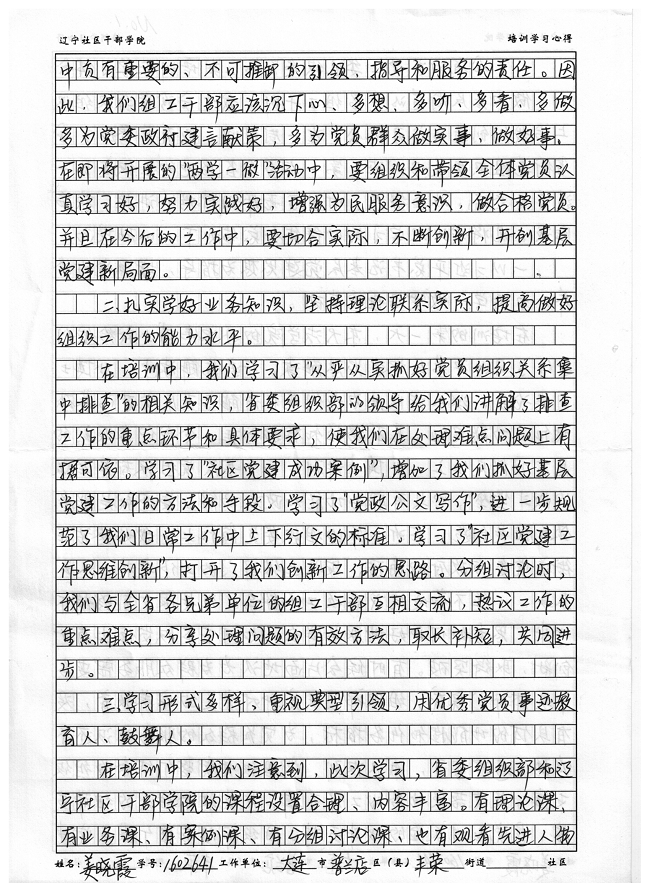 辽宁社区干部学院 培训学习心得
中负有重要的、不可推卸的引领、指导和服务的责任。因
此，我们组工干部应该沉下心、多想、多听、多看、多做
多为党委政府建言献策，多为党员群众做实事、做好事。
在即将开展的“两学一做”活动中，要组织和带领全体党员认
真学习好，努力实践好，增强为民服务意识，做合格党员。
并且在今后的工作中，要切合实际，不断创新，开创基层
党建新局面。
二.扎实学好业务知识，坚持理论联系实际，提高做好
组织工作的能力水平。
在培训中，我们学习了“从严从实抓好党员组织关系集
中排查”的相关知识，省委组织部的领导给我们讲解了排查
工作的重点环节和具体要求，使我们在处理难点问题上有
据可依。学习了“社区党建成功案例”，增加了我们抓好基层
党建工作的方法和手段。学习了“党政公文写作”，进一步规
范了我们日常工作中上下行文的标准。学习了“社区党建工
作思维创新”，打开了我们创新工作的思路。分组讨论时，
我们与全省各兄弟单位的组工干部互相交流，热议工作的
重点难点，分享处理问题的有效方法，取长补短，共同进
步。
三.学习形式多样，重视典型引领，用优秀党员事迹教
育人、鼓舞人。
在培训中，我们注意到，此次学习，省委组织部和辽
宁社区干部学院的课程设置合理、内容丰富。有理论课、
有业务课、有案例课、有分组讨论课、也有观看先进人物
姓名：姜晓霞 学号：1602641 工作单位： 大连 市 普兰店 区（县） 丰荣 街道 社区